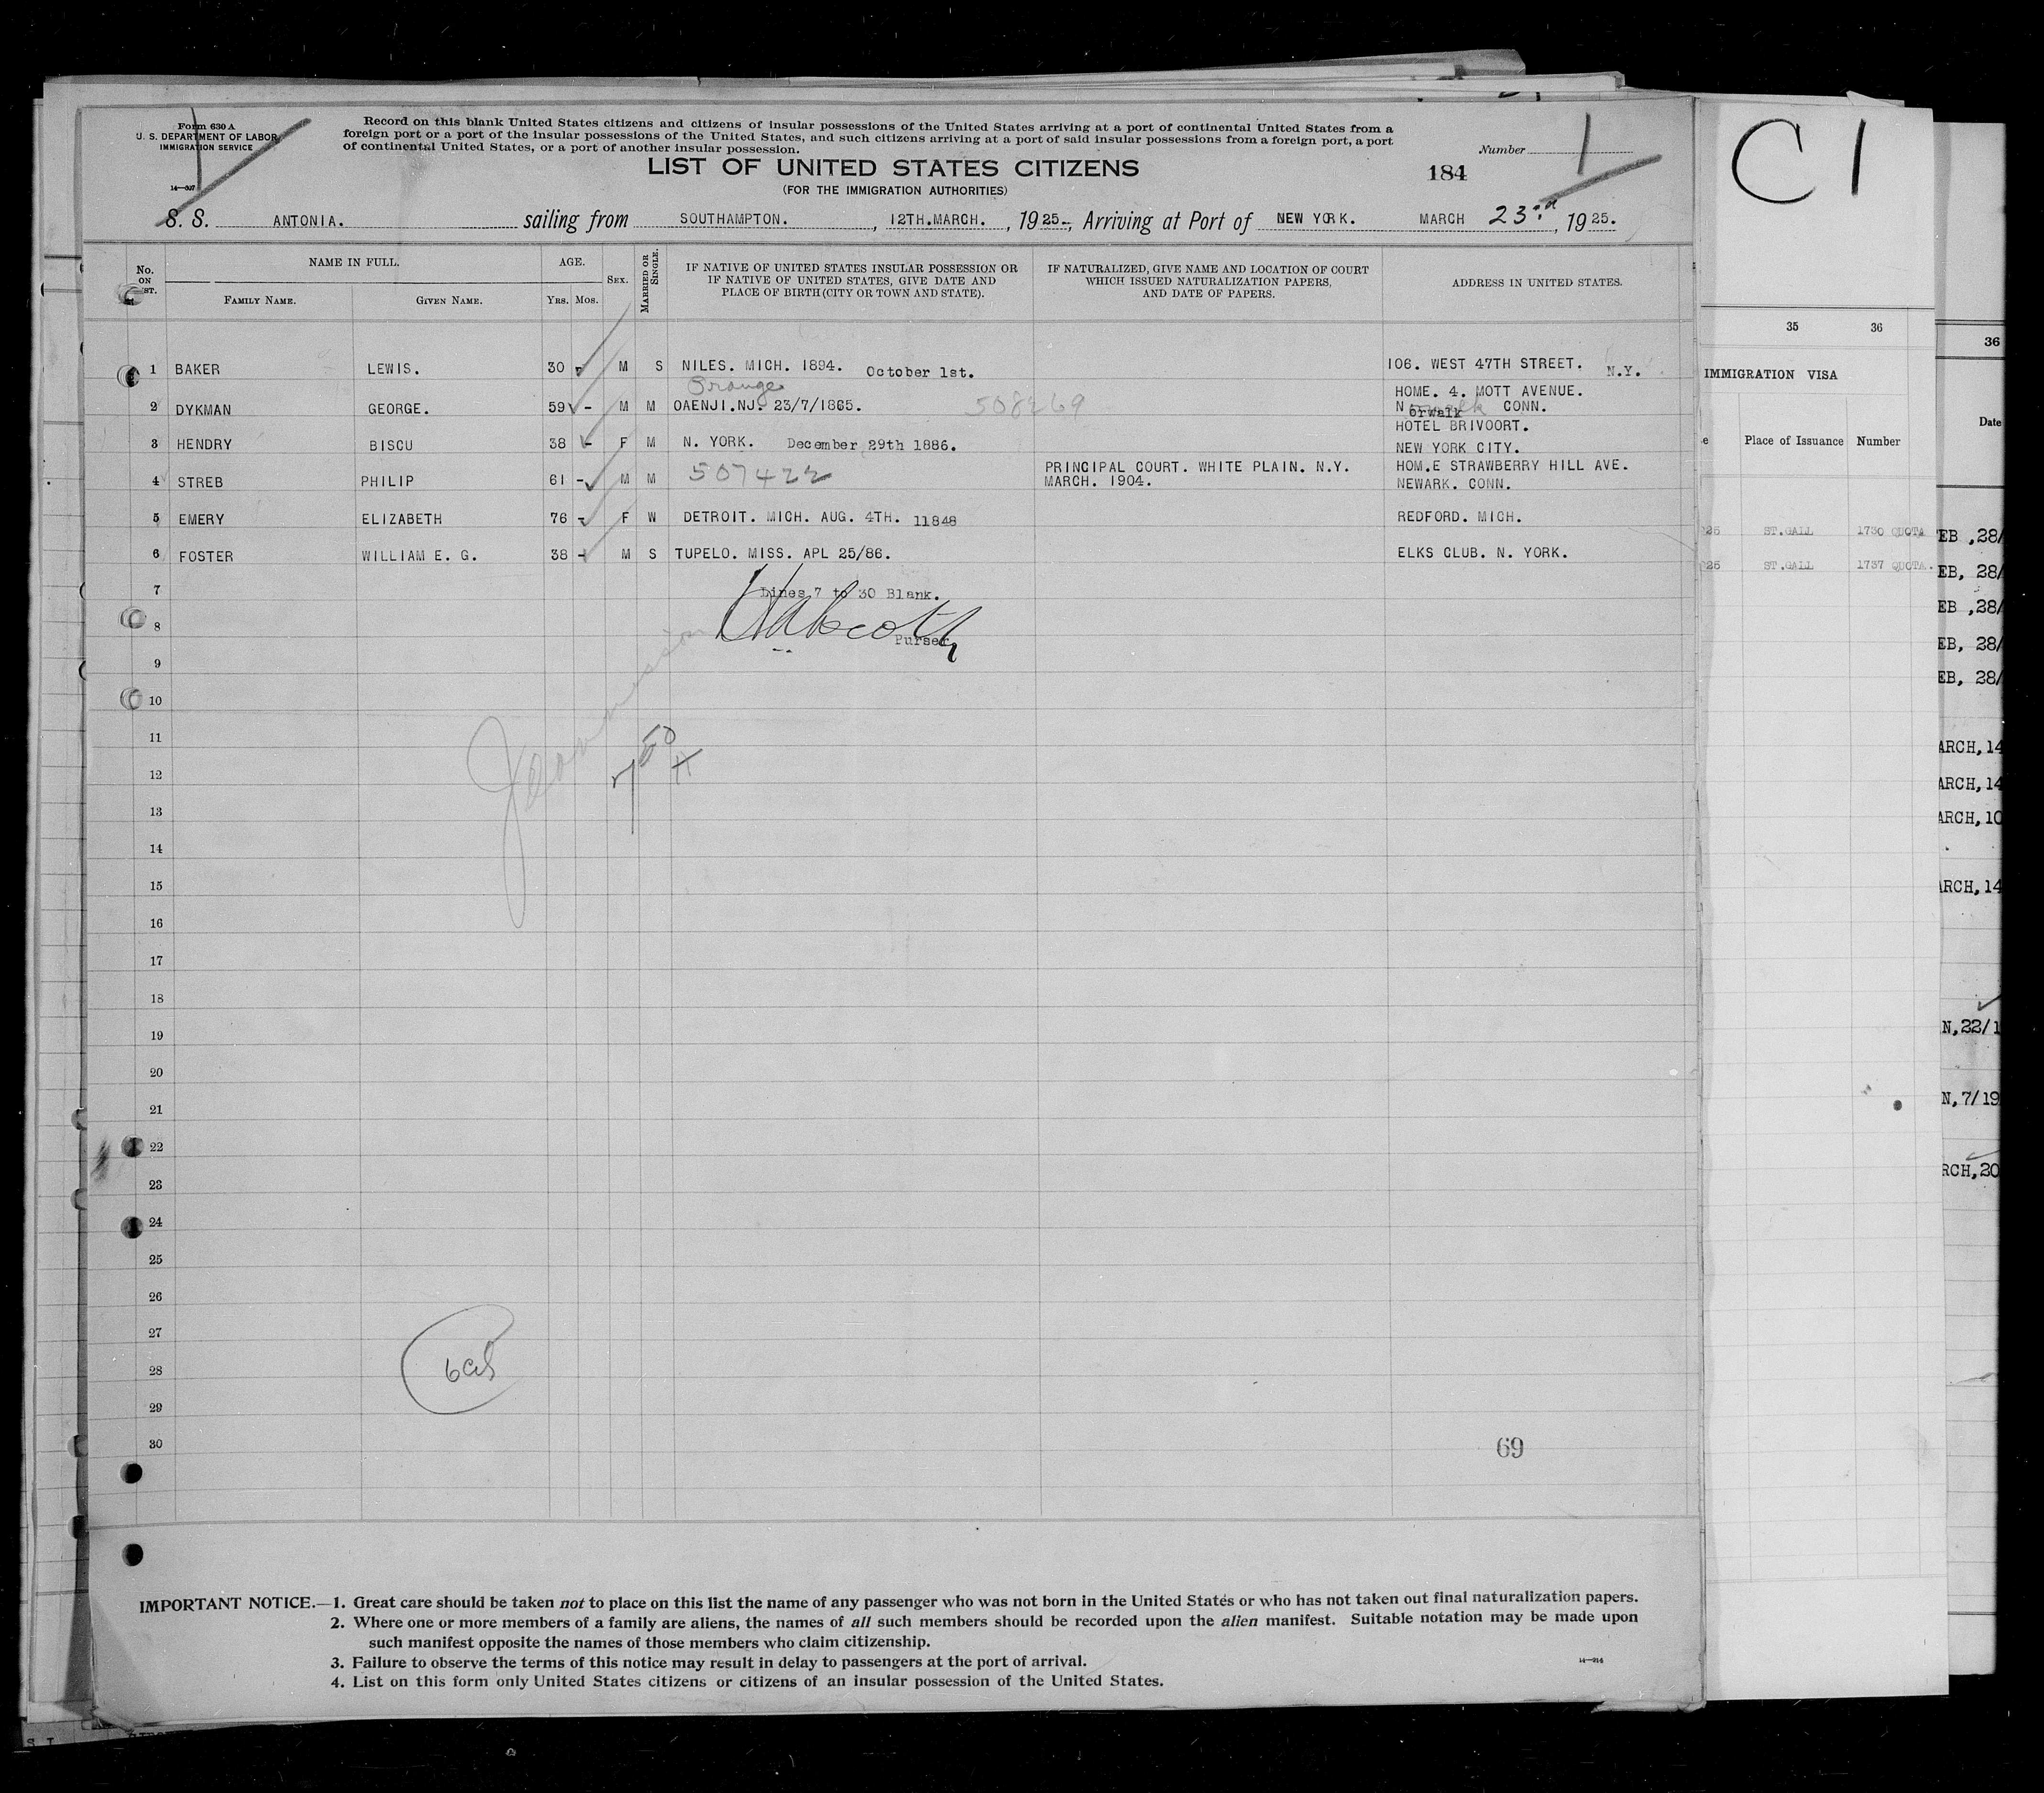 Form 630 A
U. S. DEPARTMENT OF LABOR
IMMIGRATION SERVICE
14—307
Record on this blank United States citizens and citizens of insular possessions of the United States arriving at a port of continental United States from a
foreign port or a port of the insular possessions of the United States, and such citizens arriving at a port of said insular possessions from a foreign port, a port
of continental United States, or a port of another insular possession.
LIST OF UNITED STATES CITIZENS
(FOR THE IMMIGRATION AUTHORITIES)
Number 1
184
S. S. ANTONIA. sailing from SOUTHAMPTON. , 12TH.MARCH. , 1925., Arriving at Port of NEW YORK. MARCH 23rd, 1925.
No. ON LIST.
NAME IN FULL.
FAMILY NAME.
GIVEN NAME.
AGE.
YRS. MOS.
SEX.
MARRIED OR SINGLE.
IF NATIVE OF UNITED STATES INSULAR POSSESSION OR
IF NATIVE OF UNITED STATES, GIVE DATE AND
PLACE OF BIRTH (CITY OR TOWN AND STATE).
IF NATURALIZED, GIVE NAME AND LOCATION OF COURT
WHICH ISSUED NATURALIZATION PAPERS,
AND DATE OF PAPERS.
ADDRESS IN UNITED STATES.
1 BAKER LEWIS. 30 - M S NILES. MICH. 1894. October 1st. 106. WEST 47TH STREET. N.Y.
Orange
HOME. 4. MOTT AVENUE.
2 DYKMAN GEORGE. 59 - M M OAENJI.NJ. 23/7/1865. 508269 Norwalk CONN.
HOTEL BRIVOORT.
3 HENDRY BISCU 38 - F M N. YORK. December 29th 1886. NEW YORK CITY.
PRINCIPAL COURT. WHITE PLAIN. N.Y. HOM.E STRAWBERRY HILL AVE.
4 STREB PHILIP 61 - M M 507422 MARCH. 1904. NEWARK. CONN.
5 EMERY ELIZABETH 76 - F W DETROIT. MICH. AUG. 4TH. 11848 REDFORD. MICH.
6 FOSTER WILLIAM E. G. 38 - M S TUPELO. MISS. APL 25/86. ELKS CLUB. N. YORK.
7 Lines 7 to 30 Blank.
8
Purser
9
10
11
12
13
14
15
16
17
18
19
20
21
22
23
24
25
26
27
28
29
30
69
IMPORTANT NOTICE.—1. Great care should be taken not to place on this list the name of any passenger who was not born in the United States or who has not taken out final naturalization papers.
2. Where one or more members of a family are aliens, the names of all such members should be recorded upon the alien manifest. Suitable notation may be made upon
such manifest opposite the names of those members who claim citizenship.
3. Failure to observe the terms of this notice may result in delay to passengers at the port of arrival.
14—214
4. List on this form only United States citizens or citizens of an insular possession of the United States.
C1
35 36
IMMIGRATION VISA
Place of Issuance Number
25 ST.GALL 1730 QUOTA
25 ST.GALL 1737 QUOTA.
36
Date
EB ,28/
EB, 28/
EB ,28/
EB, 28/
EB, 28/
ARCH,14
ARCH,14
ARCH,10
ARCH,14
N,22/1
N,7/19
RCH,20